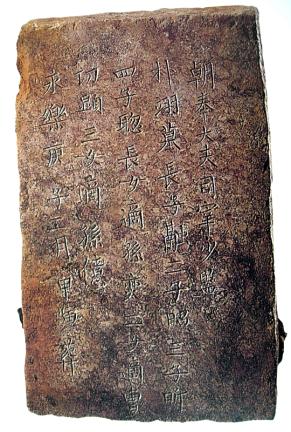 朝奉大夫司宰少監
朴翊葬長子融二子昭三子昕
四子聰長女適孫奕二女適曹
功顯三女適孫億
永樂庚子二月甲寅葬